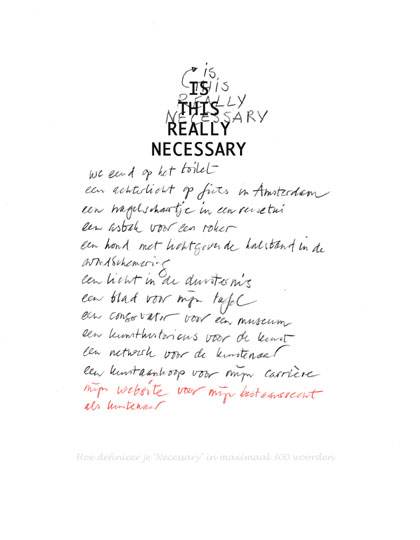 is
THIS
REALLY
NECESSARY
IS
THIS
REALLY
NECESSARY
wc eend op het toilet
een achterlicht op fiets in Amsterdam
een nagelschaartje in een reisetui
een asbak voor een roker
een hond met lichtgevende halsband in de
avondschemering
een licht in de duisternis
een blad voor mijn tafel
een conservator voor een museum
een kunsthistoricus voor de kunst
een netwerk voor de kunstenaar
een kunstaankoop voor mijn carrière
mijn website voor mijn bestaansrecht
als kunstenaar
Hoe definieer je 'Necessary' in maximaal 300 woorden